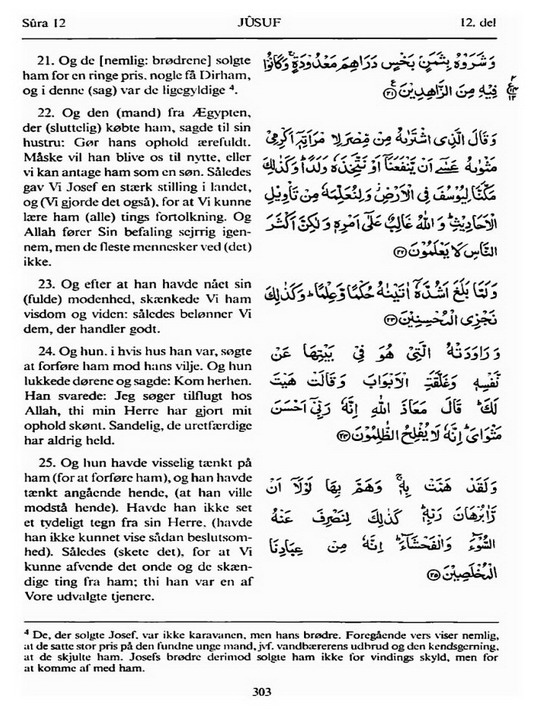 Sûra 12 JŪSUF 12. del
21. Og de [nemlig: brødrene] solgte
ham for en ringe pris. nogle få Dirham,
og i denne (sag) var de ligegyldige ⁴.
22. Og den (mand) fra Ægypten,
der (sluttelig) købte ham, sagde til sin
hustru: Gør hans ophold ærefuldt.
Måske vil han blive os til nytte, eller
vi kan antage ham som en søn. Således
gav Vi Josef en stærk stilling i landet,
og (Vi gjorde det også), for at Vi kunne
lære ham (alle) tings fortolkning. Og
Allah fører Sin befaling sejrrig igen-
nem, men de fleste mennesker ved (det)
ikke.
23. Og efter at han havde nået sin
(fulde) modenhed, skænkede Vi ham
visdom og viden: således belønner Vi
dem, der handler godt.
24. Og hun. i hvis hus han var, søgte
at forføre ham mod hans vilje. Og hun
lukkede dørene og sagde: Kom herhen.
Han svarede: Jeg søger tilflugt hos
Allah, thi min Herre har gjort mit
ophold skønt. Sandelig, de uretfærdige
har aldrig held.
25. Og hun havde visselig tænkt på
ham (for at forføre ham), og han havde
tænkt angående hende, (at han ville
modstå hende). Havde han ikke set
et tydeligt tegn fra sin Herre, (havde
han ikke kunnet vise sådan beslutsom-
hed). Således (skete det), for at Vi
kunne afvende det onde og de skæn-
dige ting fra ham; thi han var en af
Vore udvalgte tjenere.
وَشَرَوْهُ بِثَمَنٍ بَخْسٍ دَرَاهِمَ مَعْدُودَةٍ وَكَانُوْا
فِيْهِ مِنَ الزَّاهِدِيْنَ ﴿٢١﴾
وَقَالَ الَّذِى اشْتَرٰىهُ مِنْ مِّصْرَ لِامْرَاَتِهٖٓ اَكْرِمِىْ
مَثْوٰىهُ عَسٰٓى اَنْ يَّنْفَعَنَآ اَوْ نَتَّخِذَهٗ وَلَدًا وَكَذٰلِكَ
مَكَّنَّا لِيُوْسُفَ فِى الْاَرْضِ وَلِنُعَلِّمَهٗ مِنْ تَأْوِيْلِ
الْاَحَادِيْثِ وَاللّٰهُ غَالِبٌ عَلٰٓى اَمْرِهٖ وَلٰكِنَّ اَكْثَرَ
النَّاسِ لَا يَعْلَمُوْنَ ﴿٢٢﴾
وَلَمَّا بَلَغَ اَشُدَّهٗٓ اٰتَيْنٰهُ حُكْمًا وَّعِلْمًا وَكَذٰلِكَ
نَجْزِى الْمُحْسِنِيْنَ ﴿٢٣﴾
وَرَاوَدَتْهُ الَّتِىْ هُوَ فِىْ بَيْتِهَا عَنْ
نَّفْسِهٖ وَغَلَّقَتِ الْاَبْوَابَ وَقَالَتْ هَيْتَ
لَكَ قَالَ مَعَاذَ اللّٰهِ اِنَّهٗ رَبِّىْٓ اَحْسَنَ
مَثْوَاىَ اِنَّهٗ لَا يُفْلِحُ الظّٰلِمُوْنَ ﴿٢٤﴾
وَلَقَدْ هَمَّتْ بِهٖ وَهَمَّ بِهَا لَوْلَآ اَنْ
رَّاٰ بُرْهَانَ رَبِّهٖ كَذٰلِكَ لِنَصْرِفَ عَنْهُ
السُّوْٓءَ وَالْفَحْشَآءَ اِنَّهٗ مِنْ عِبَادِنَا
الْمُخْلَصِيْنَ ﴿٢٥﴾
⁴ De, der solgte Josef. var ikke karavanen, men hans brødre. Foregående vers viser nemlig,
at de satte stor pris på den fundne unge mand, jvf. vandbærerens udbrud og den kendsgerning,
at de skjulte ham. Josefs brødre derimod solgte ham ikke for vindings skyld, men for
at komme af med ham.
303